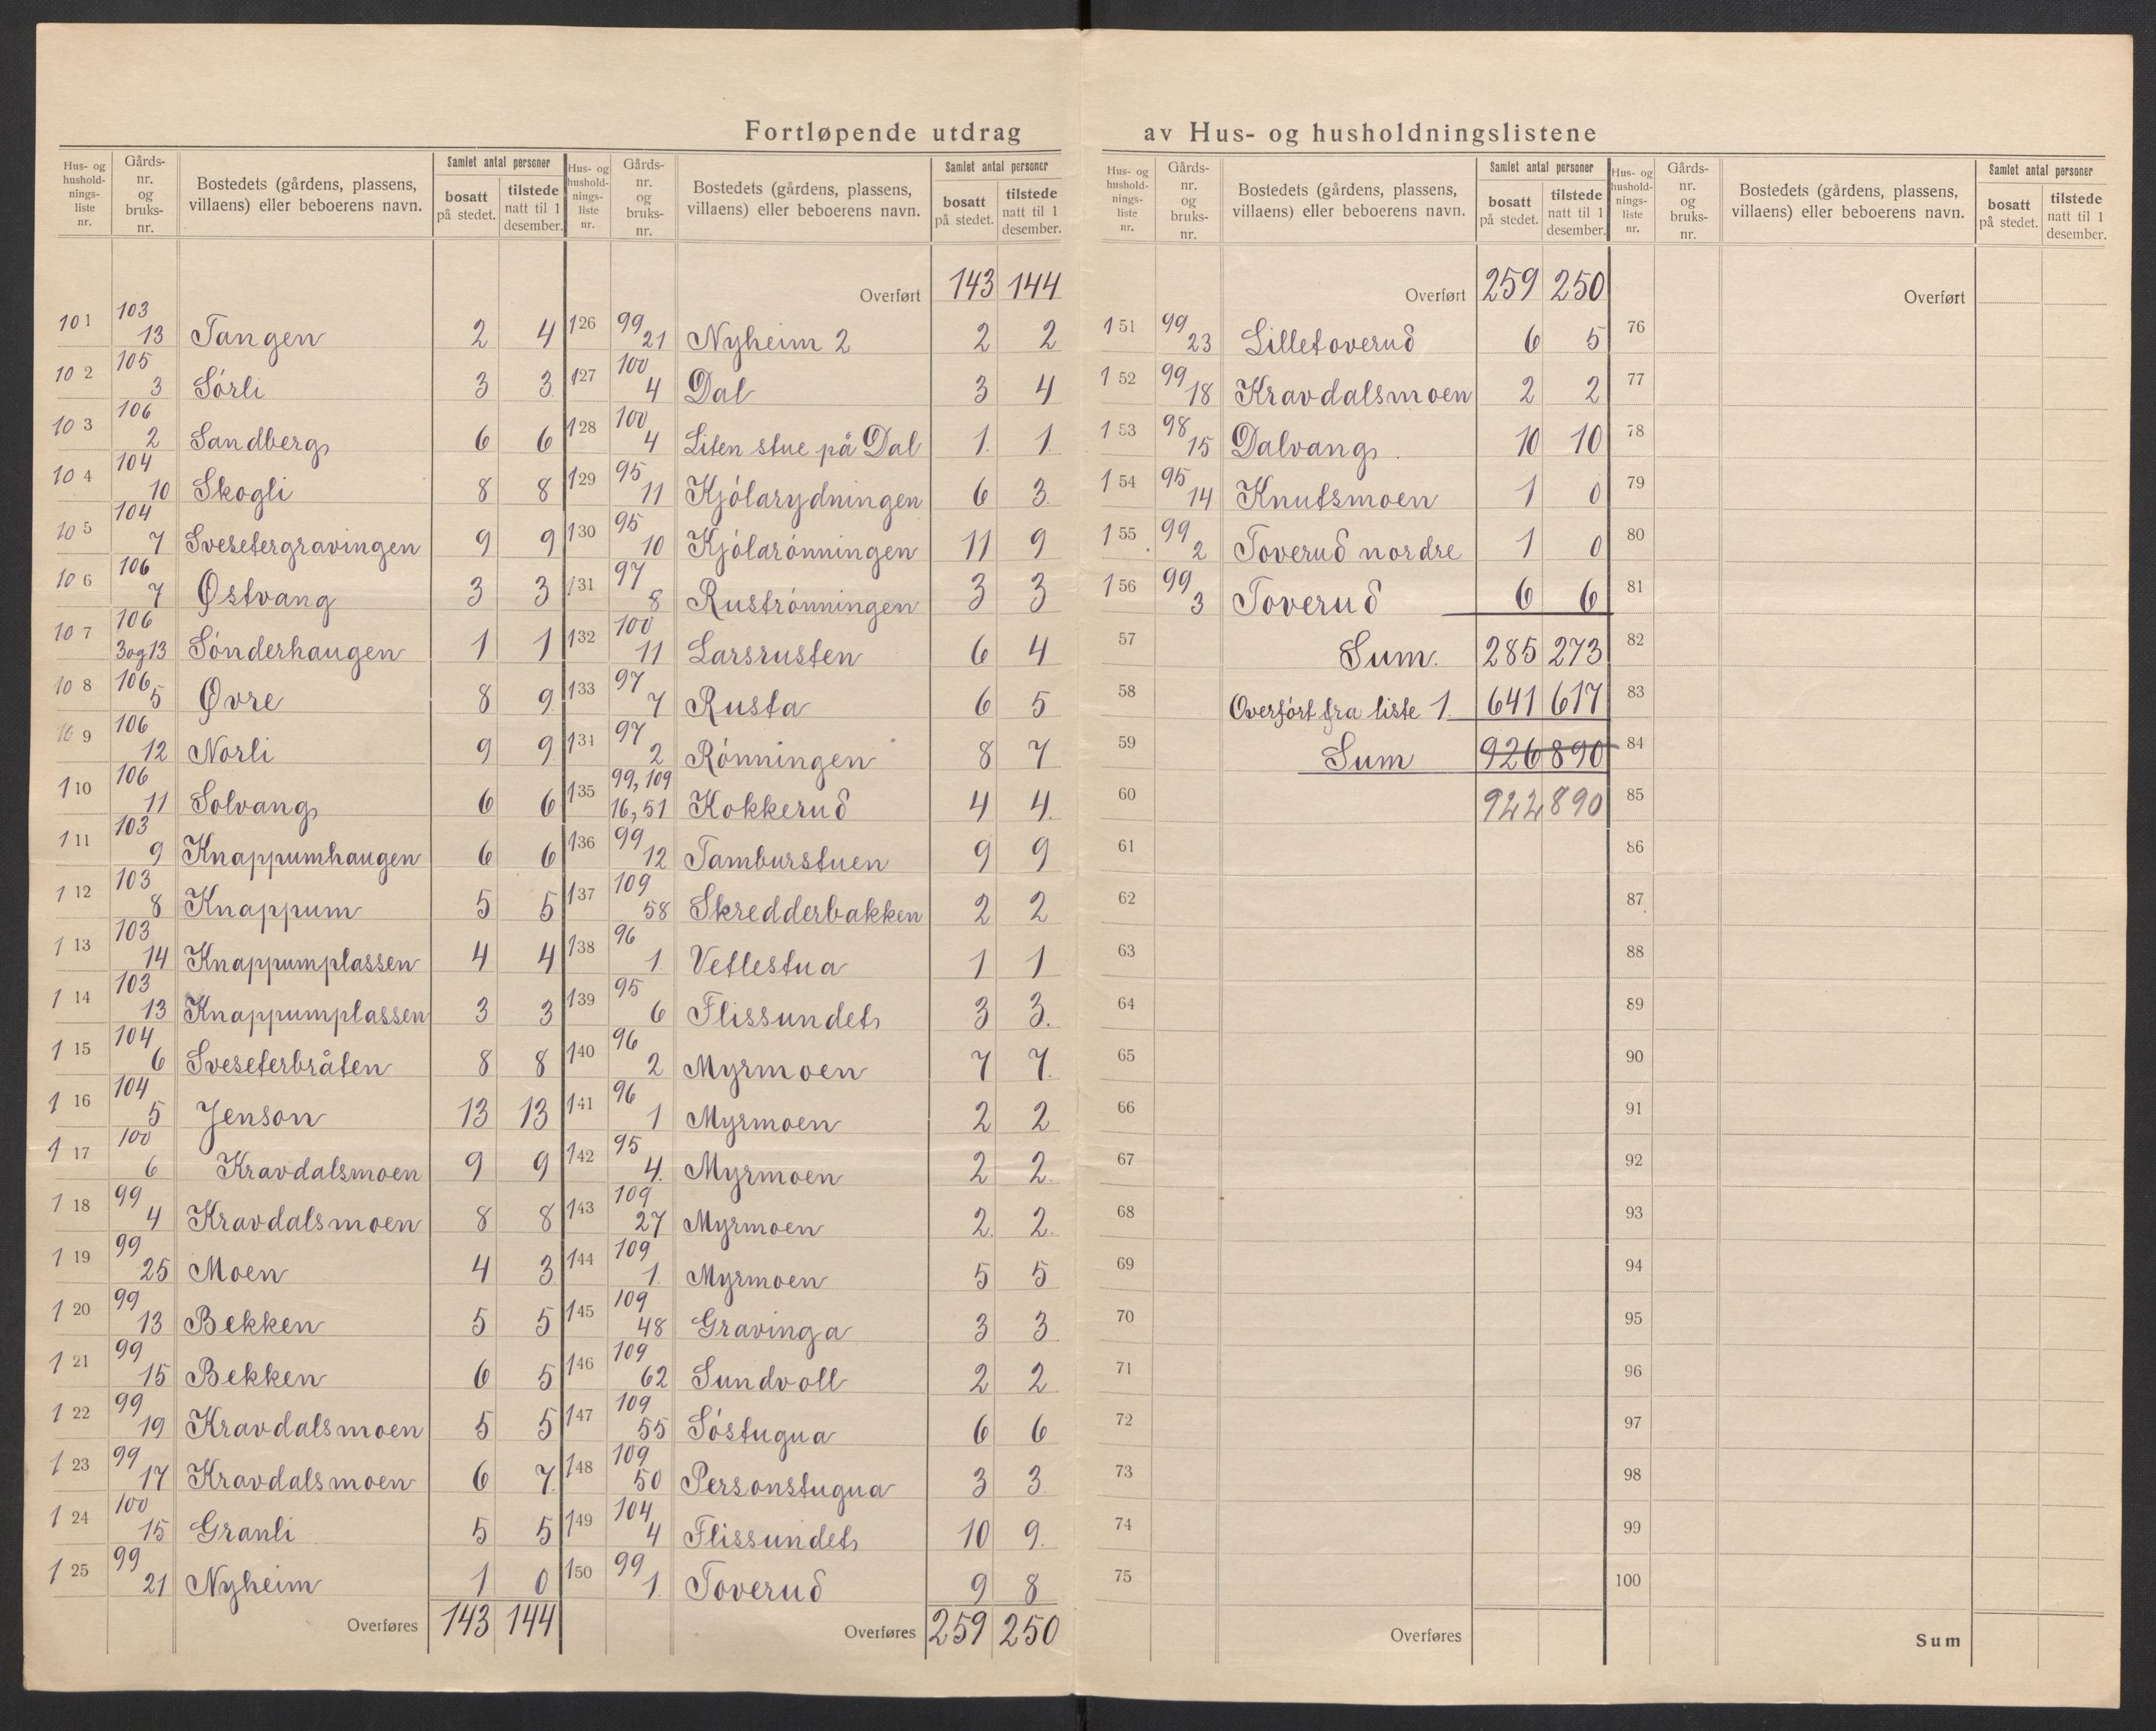 Fortløpende utdrag av Hus- og husholdningslistene
Hus- og hushold-nings-liste nr. | Gårds-nr. og bruks-nr. | Bostedets (gårdens, plassens, villaens) eller beboerens navn. | Samlet antal personer | bosatt på stedet. | tilstede natt til 1 desember.
101 103 13 Tangen 2 4
102 105 3 Sörli 3 3
103 106 2 Sandberg 6 6
104 104 10 Skogli 8 8
105 104 7 Svesetergravingen 9 9
106 106 7 Østvang 3 3
107 106 3og13 Sönderhaugen 1 1
108 106 5 Øvre 8 9
109 106 12 Norli 9 9
110 106 11 Solvang 6 6
111 103 9 Knappumhaugen 6 6
112 103 8 Knappum 5 5
113 103 14 Knappumplassen 4 4
114 103 13 Knappumplassen 3 3
115 104 6 Sveseterbråten 8 8
116 104 5 Jenson 13 13
117 100 6 Kravdalsmoen 9 9
118 99 4 Kravdalsmoen 8 8
119 99 25 Moen 4 3
120 99 13 Bekken 5 5
121 99 15 Bekken 6 5
122 99 19 Kravdalsmoen 5 5
123 99 17 Kravdalsmoen 6 7
124 100 15 Granli 5 5
125 99 21 Nyheim 1 0
Overføres 143 144
Hus- og hushold-nings-liste nr. | Gårds-nr. og bruks-nr. | Bostedets (gårdens, plassens, villaens) eller beboerens navn. | Samlet antal personer | bosatt på stedet. | tilstede natt til 1 desember.
Overført 143 144
126 99 21 Nyheim 2 2 2
127 100 4 Dal 3 4
128 100 4 Liten stue på Dal 1 1
129 95 11 Kjölarydningen 6 3
130 95 10 Kjölarönningen 11 9
131 97 8 Ruströnningen 3 3
132 100 11 Larsrusten 6 4
133 97 7 Rusta 6 5
134 97 2 Rönningen 8 7
135 99, 109 16, 51 Kokkerud 4 4
136 99 12 Tamburstuen 9 9
137 109 58 Skredderbakken 2 2
138 96 1 Vetlestua 1 1
139 95 6 Flissundet 3 3
140 96 2 Myrmoen 7 7
141 96 1 Myrmoen 2 2
142 95 4 Myrmoen 2 2
143 109 27 Myrmoen 2 2
144 109 1 Myrmoen 5 5
145 109 48 Gravinga 3 3
146 109 62 Sundvoll 2 2
147 109 55 Söstugua 6 6
148 109 50 Personstugua 3 3
149 104 4 Flissundet 10 9
150 99 1 Toverud 9 8
Overføres 259 250
Hus- og hushold-nings-liste nr. | Gårds-nr. og bruks-nr. | Bostedets (gårdens, plassens, villaens) eller beboerens navn. | Samlet antal personer | bosatt på stedet. | tilstede natt til 1 desember.
Overført 259 250
151 99 23 Lilletoverud 6 5
152 99 18 Kravdalsmoen 2 2
153 98 15 Dalvang 10 10
154 95 14 Knutsmoen 1 0
155 99 2 Toverud nordre 1 0
156 99 3 Toverud 6 6
57 Sum. 285 273
58 Overfört fra liste 1. 641 617
59 Sum 926 890
60 922 890
61
62
63
64
65
66
67
68
69
70
71
72
73
74
75
Overføres
Hus- og hushold-nings-liste nr. | Gårds-nr. og bruks-nr. | Bostedets (gårdens, plassens, villaens) eller beboerens navn. | Samlet antal personer | bosatt på stedet. | tilstede natt til 1 desember.
Overført
76
77
78
79
80
81
82
83
84
85
86
87
88
89
90
91
92
93
94
95
96
97
98
99
100
Sum